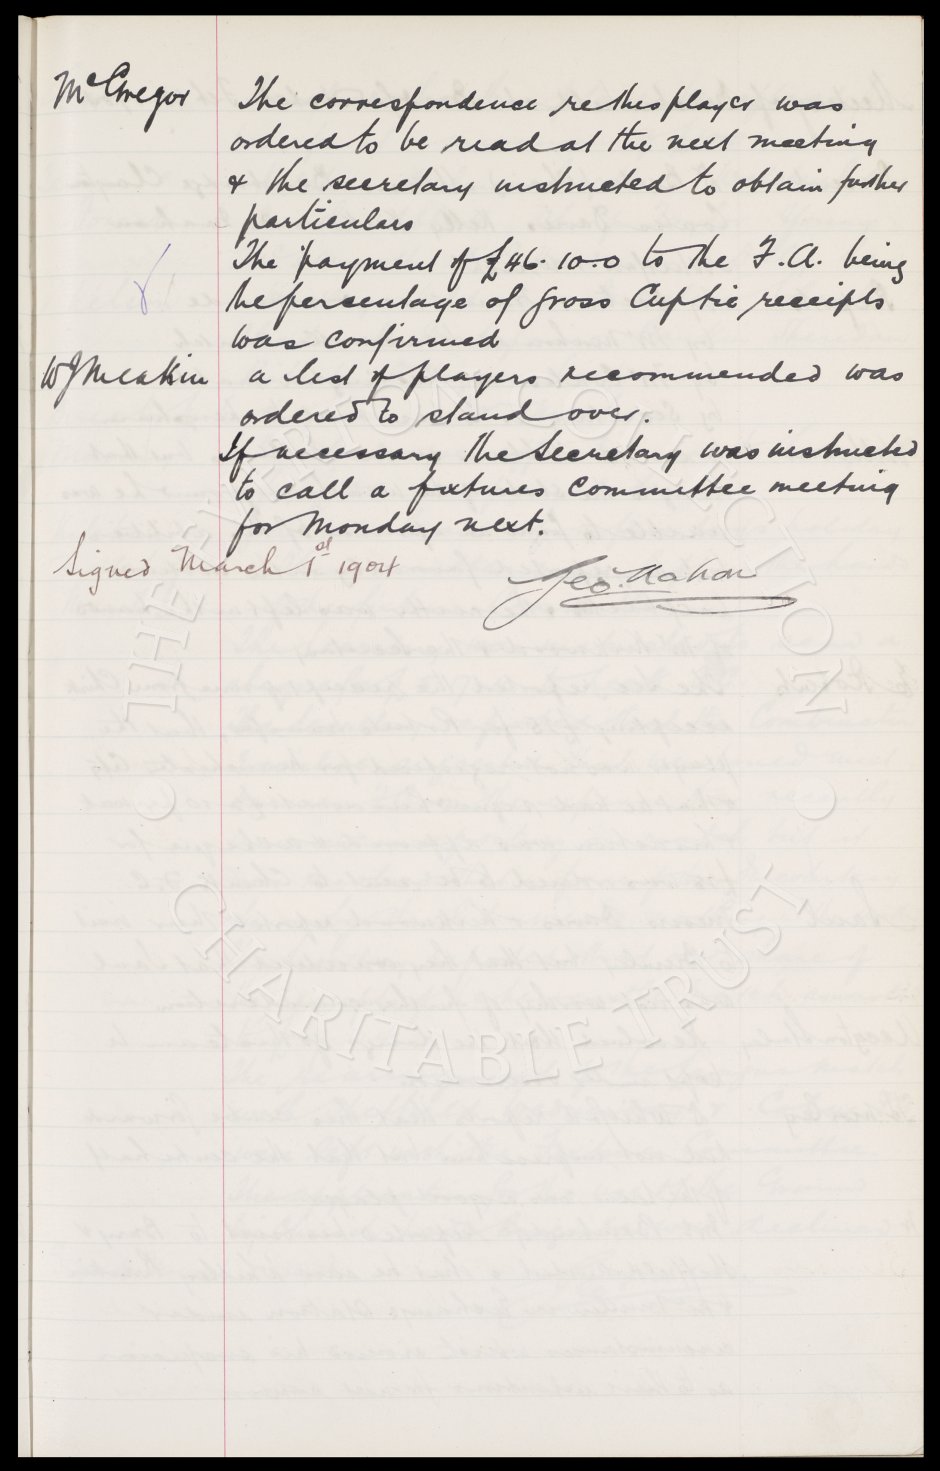 McGregor The correspondence re this player was
ordered to be read at the next meeting
& the secretary instructed to obtain further
particulars
The payment of £46.10.0 to the F.A. being
the percentage of gross Cuptie receipts
was confirmed
W J Meakin a list of players recommended was
ordered to stand over.
If necessary the Secretary was instructed
to call a fixtures Committee meeting
for Monday next.
Signed March 1st 1904
Geo. Mahon
THE EVERTON COLLECTION
CHARITABLE TRUST